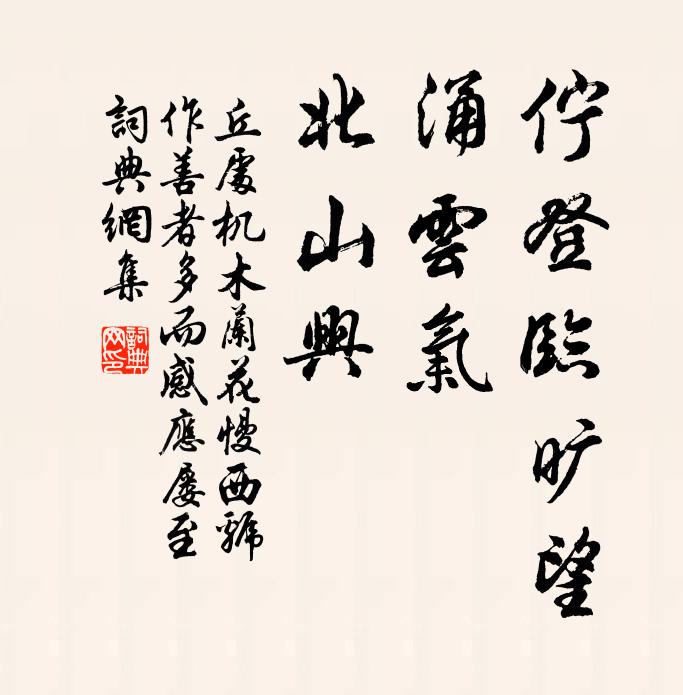 佇登臨旷望
涌雲氣
北山興
丘處机木蘭花慢西虢
作善者多而感應屡至
詞典網集
詞典
网印